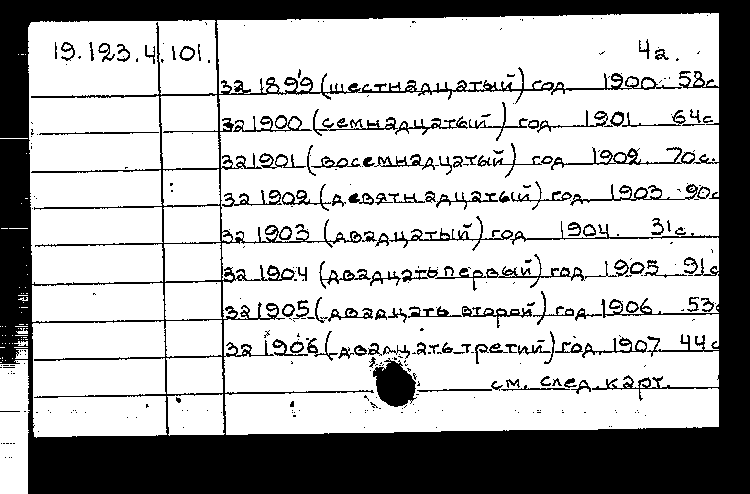 19.123.4.101. 4а.
за 1899 (шестнадцатый) год 1900. 58с
за 1900 (семнадцатый) год 1901. 64с
за 1901 (восемнадцатый) год 1902. 70с.
за 1902 (девятнадцатый) год 1903. 90с
за 1903 (двадцатый) год 1904. 31с.
за 1904 (двадцать первый) год 1905. 91с
за 1905 (двадцать второй) год 1906. 53с
за 1906 (двадцать третий) год 1907 44с
см. след. карт.